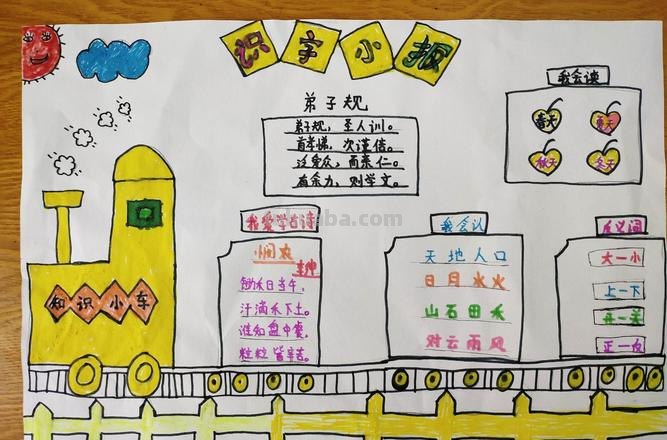 识字小报
我会读
春天
夏天
秋天
冬天
弟子规
弟子规，圣人训。
首孝悌，次谨信。
泛爱众，而亲仁。
有余力，则学文。
知识小车
我爱学古诗
悯农
李绅
锄禾日当午，
汗滴禾下土。
谁知盘中餐，
粒粒皆辛苦。
我会认
天地人口
日月水火
山石田禾
对云雨风
反义词
大—小
上—下
开—关
正—反